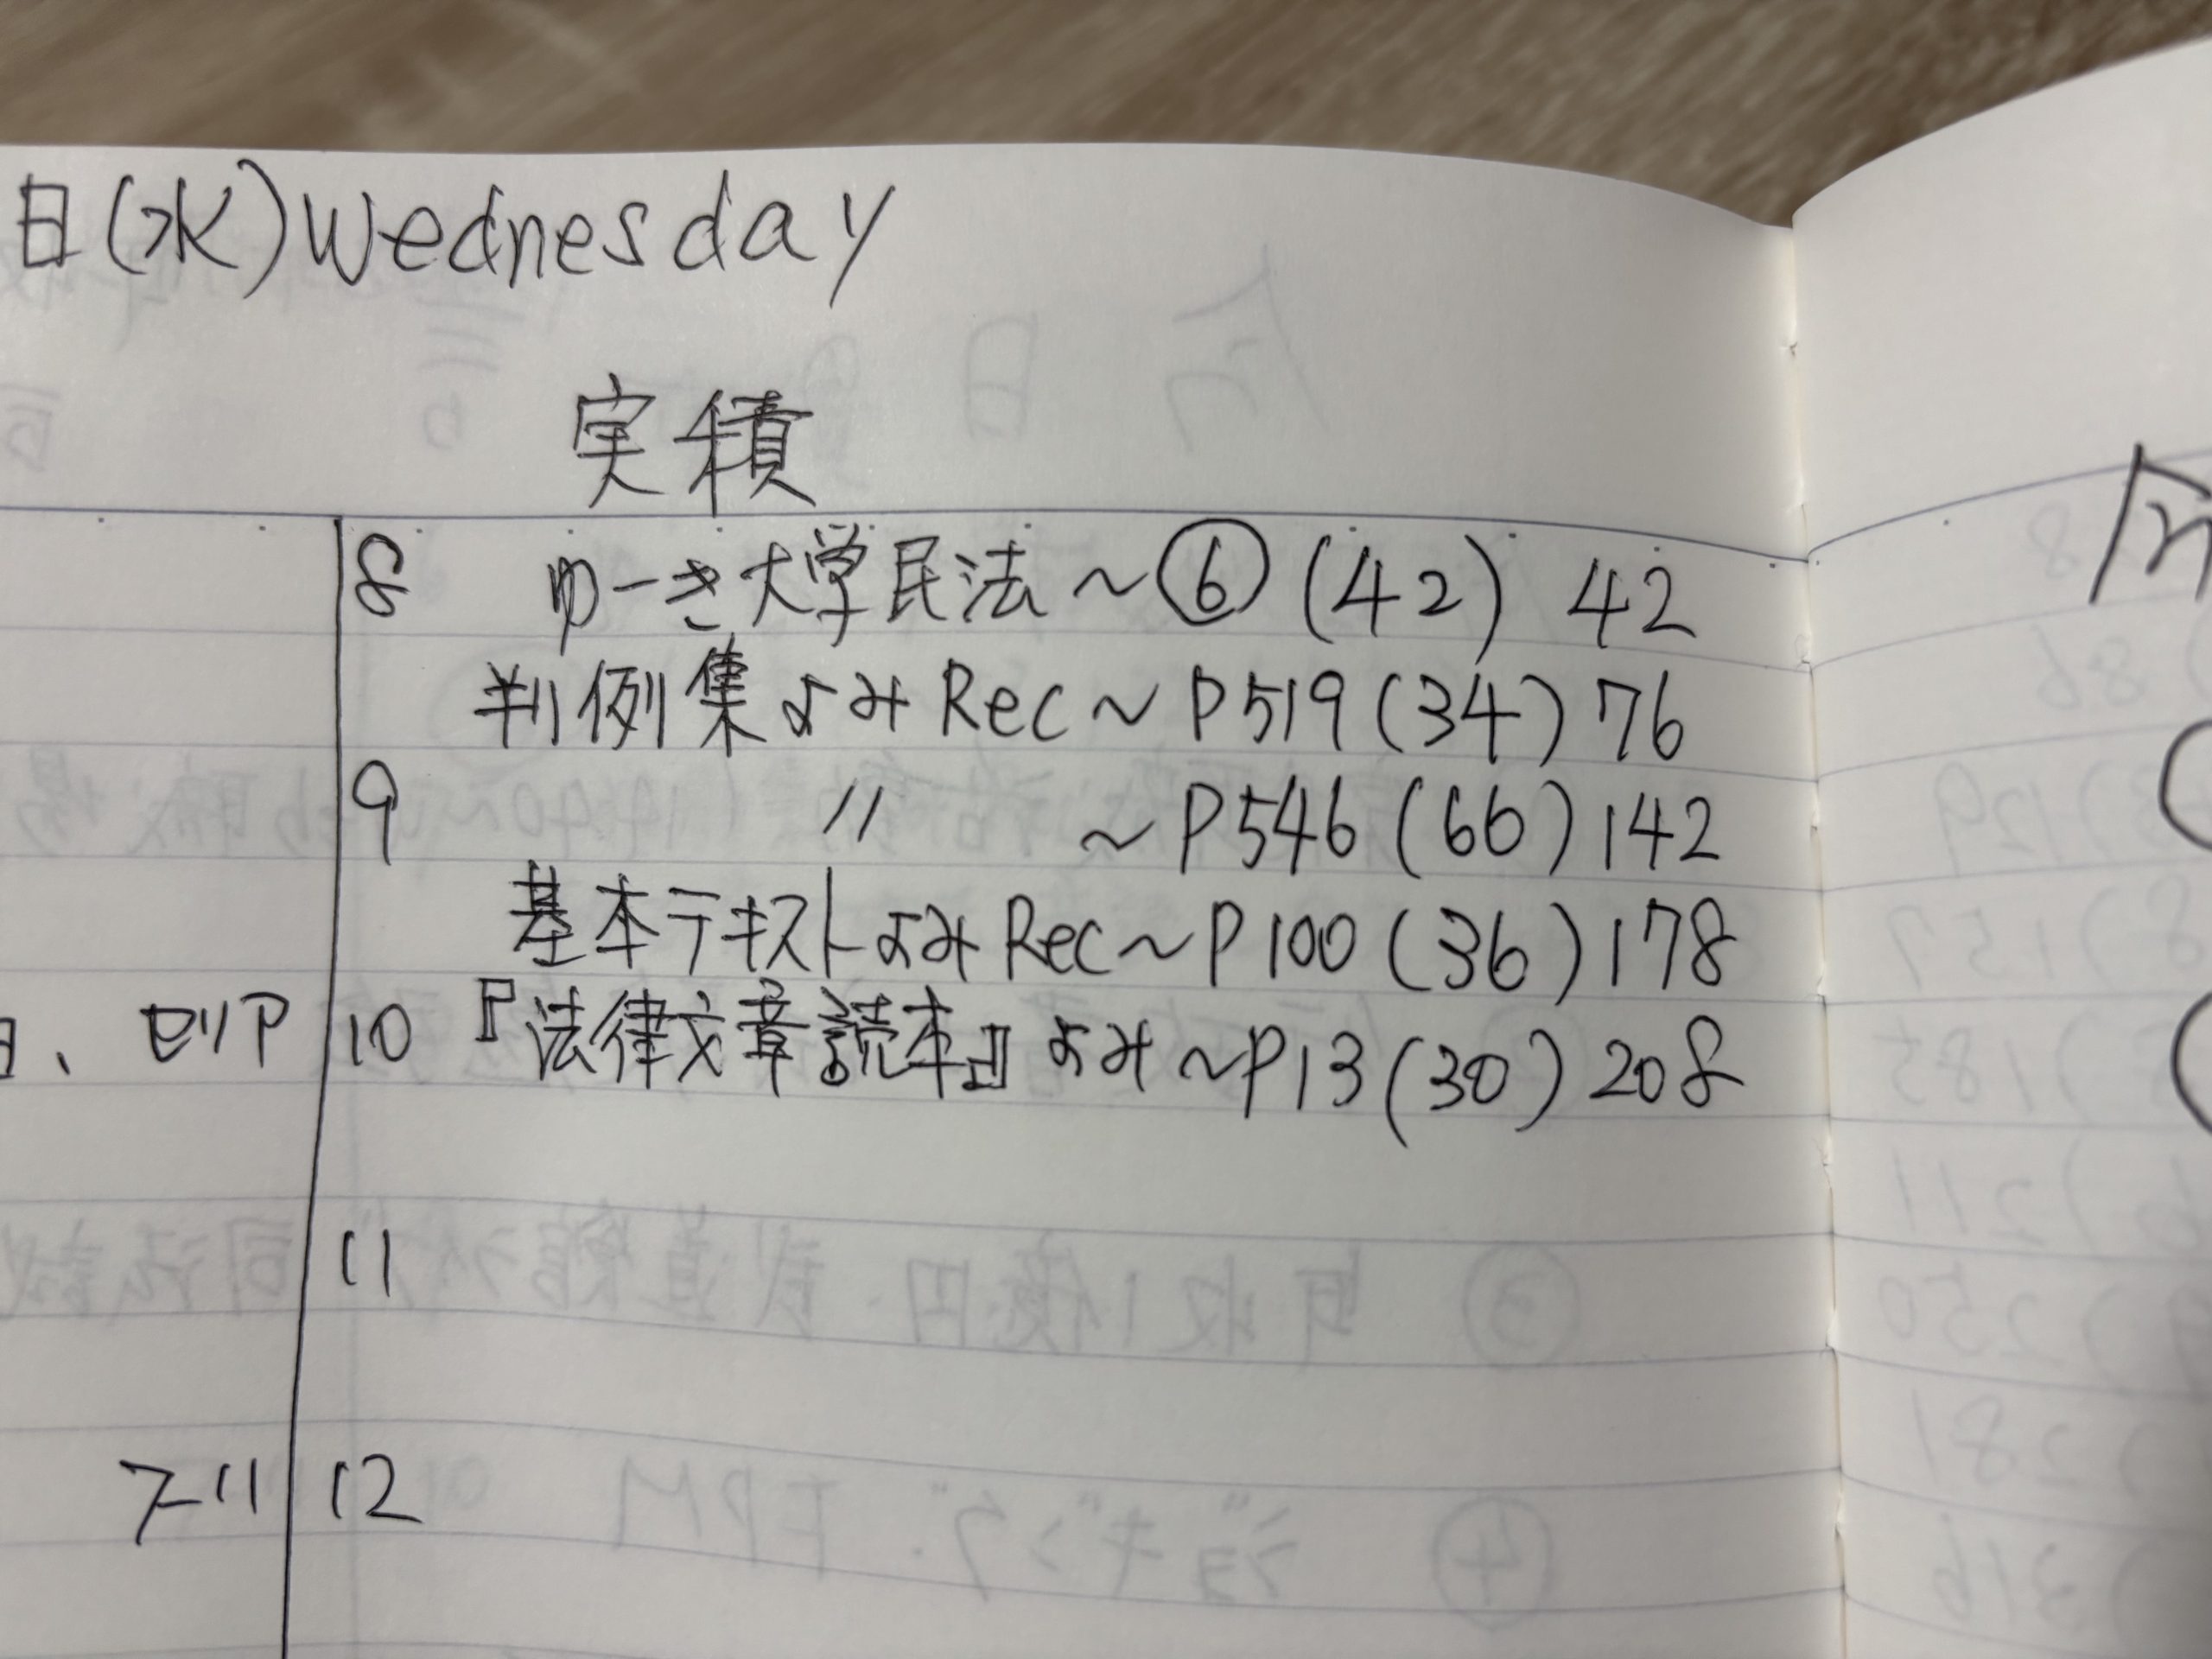 日(水)Wednesday
実積
8 ゆーき大学民法～⑥(42) 42
判例集よみRec～P519(34)76
9 〃 ～P546(66)142
基本テキストよみRec～P100(36)178
、セリア 10 『法律文章読本』よみ～P13(30)208
11
12